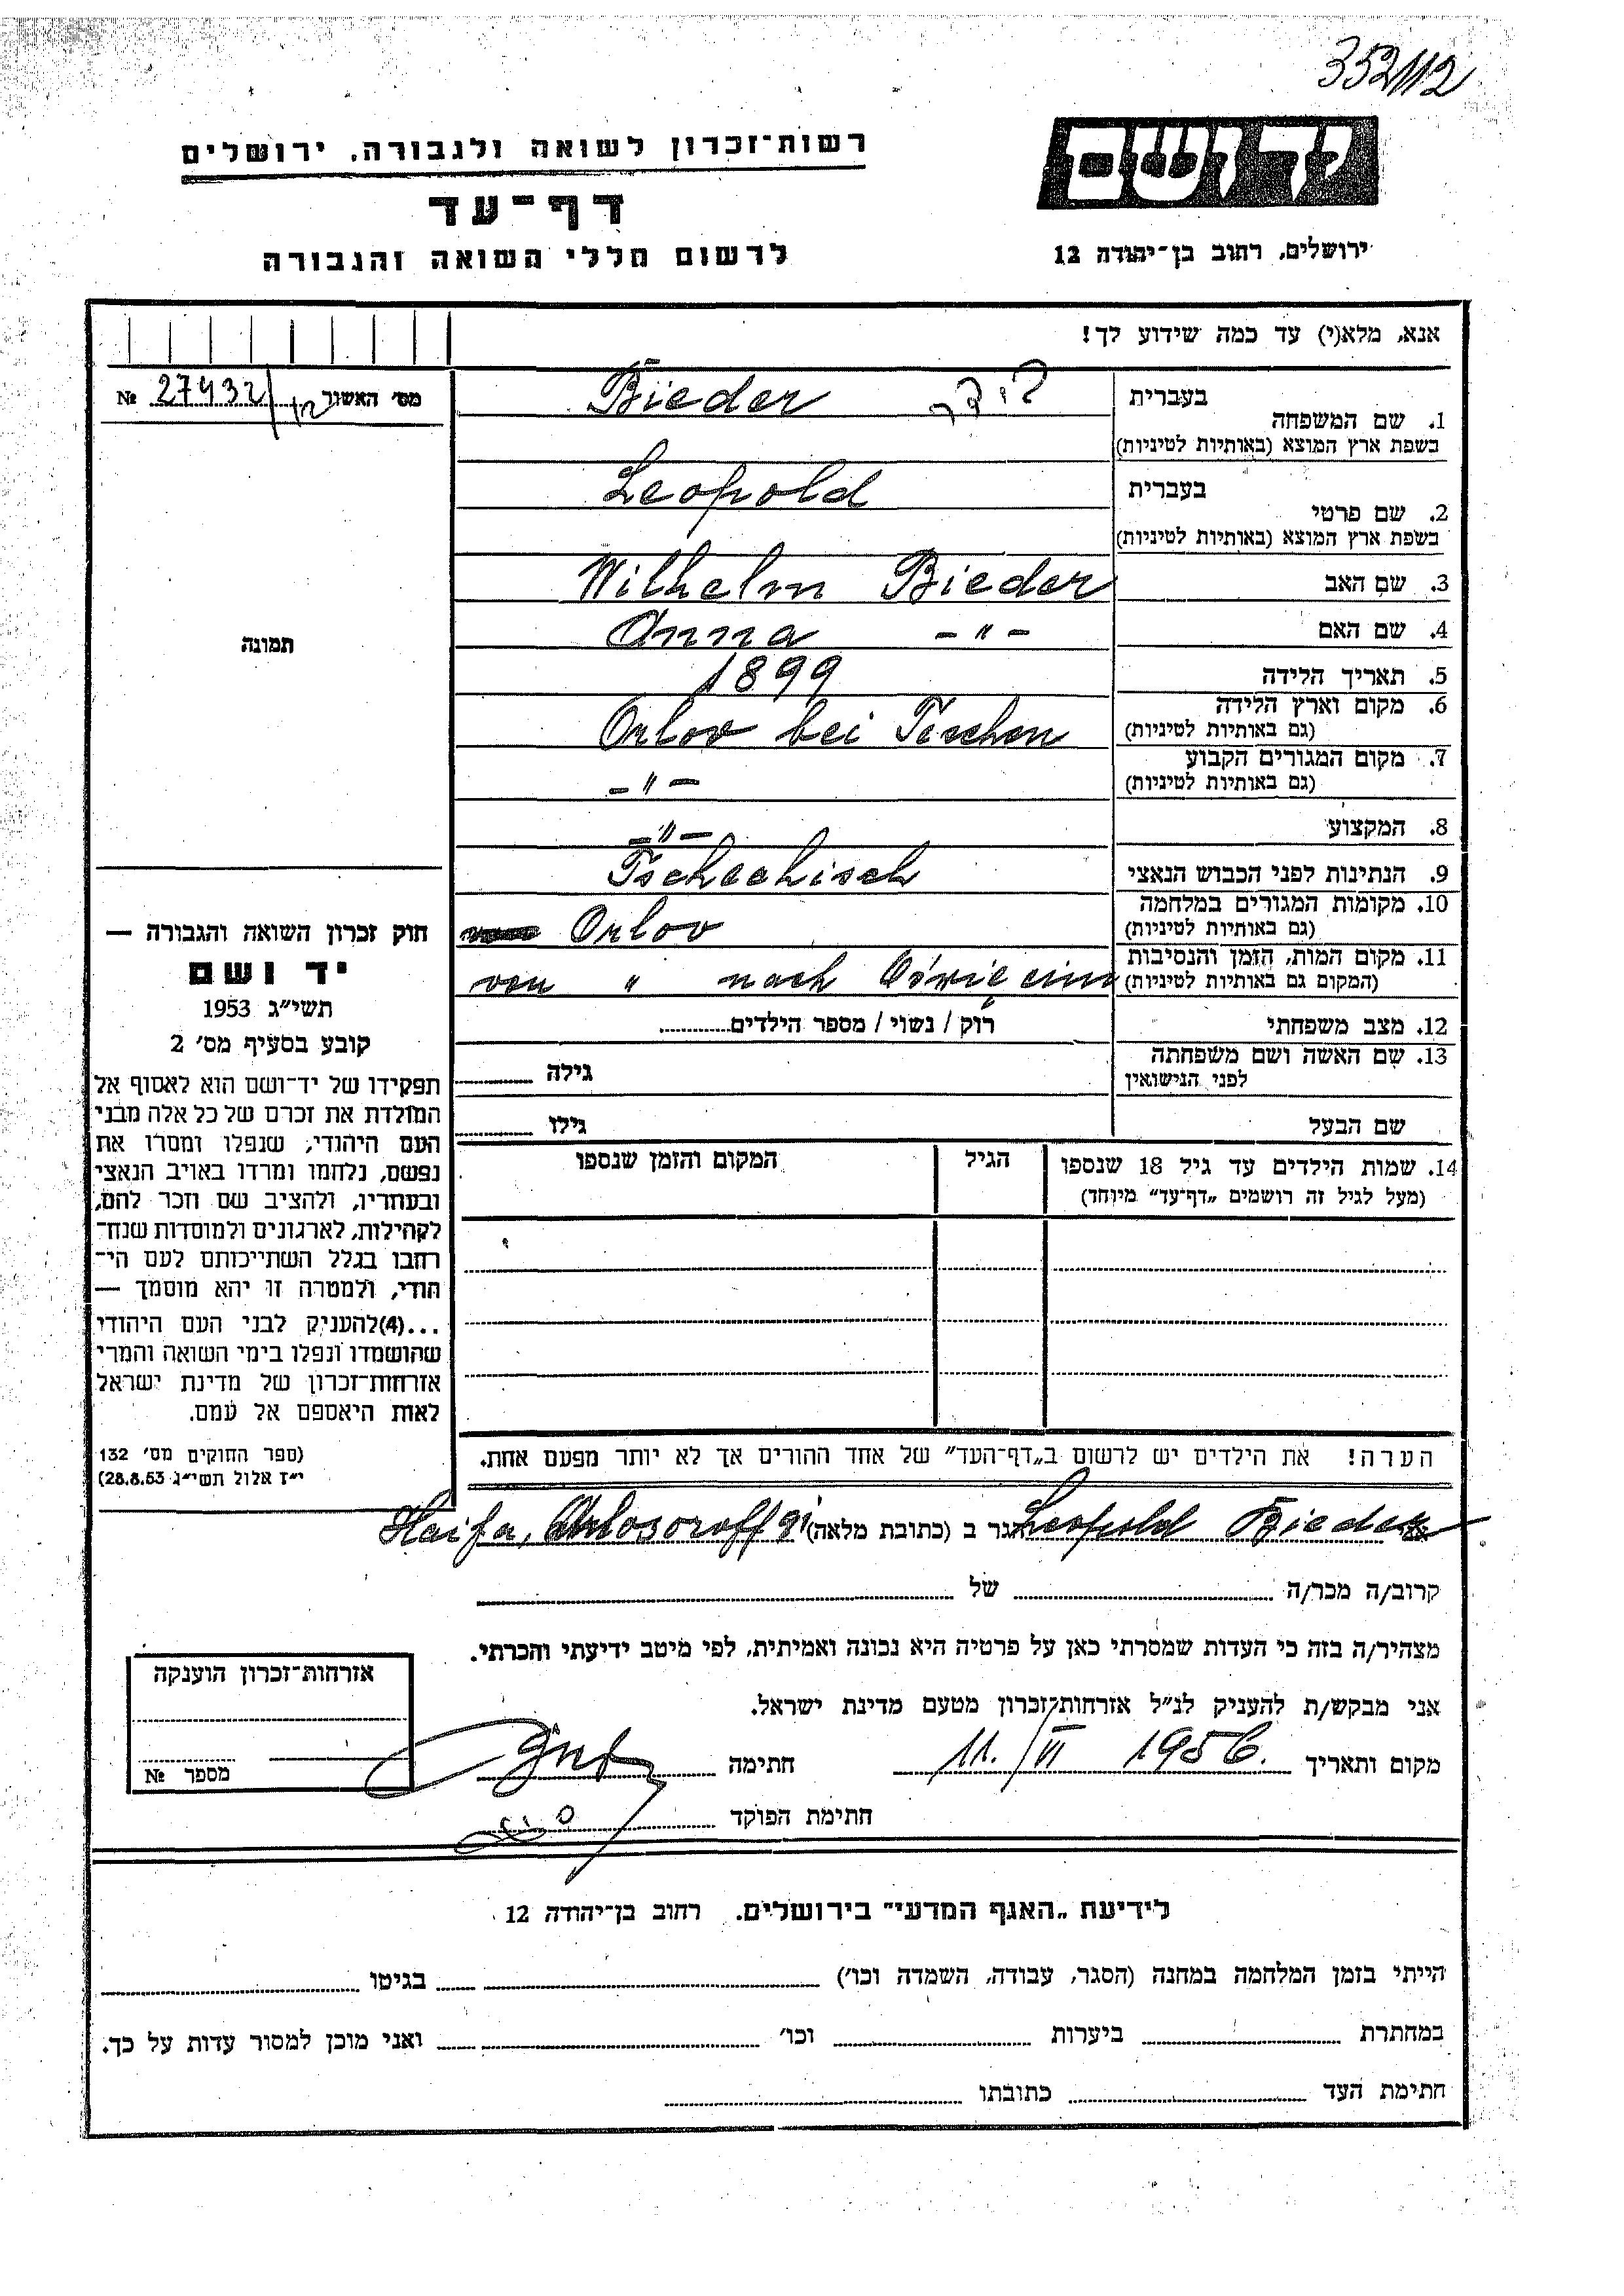 352112
יד ושם
רשות־זכרון לשואה ולגבורה, ירושלים
דף־עד
לרשום חללי השואה והגבורה
ירושלים, רחוב בן־יהודה 12
אנא, מלא(י) עד כמה שידוע לך!
מס׳ האשור № 27432
1. שם המשפחה
בעברית
בשפת ארץ המוצא (באותיות לטיניות)
Bieder בידר
2. שם פרטי
בעברית
בשפת ארץ המוצא (באותיות לטיניות)
Leopold
3. שם האב Wilhelm Bieder
4. שם האם Anna -"-
5. תאריך הלידה 1899
6. מקום וארץ הלידה
(גם באותיות לטיניות)
Orlov bei Teschen
7. מקום המגורים הקבוע
(גם באותיות לטיניות)
-"-
8. המקצוע -"-
9. הנתינות לפני הכבוש הנאצי Tschechisch
10. מקומות המגורים במלחמה
(גם באותיות לטיניות)
Orlov
11. מקום המות, הזמן והנסיבות
(המקום גם באותיות לטיניות)
von " nach
12. מצב משפחתי רוק / נשוי / מספר הילדים
13. שם האשה ושם משפחתה
לפני הנישואין
גילה
שם הבעל גילו
14. שמות הילדים עד גיל 18 שנספו
(מעל לגיל זה רושמים „דף־עד" מיוחד)
הגיל
המקום והזמן שנספו
תמונה
חוק זכרון השואה והגבורה —
יד ושם
תשי״ג 1953
קובע בסעיף מס׳ 2
תפקידו של יד־ושם הוא לאסוף אל
המולדת את זכרם של כל אלה מבני
העם היהודי, שנפלו ומסרו את
נפשם, נלחמו ומרדו באויב הנאצי
ובעוזריו, ולהציב שם וזכר להם,
לקהילות, לארגונים ולמוסדות שנח־
רבו בגלל השתייכותם לעם הי־
הודי, ולמטרה זו יהא מוסמך —
...(4)להעניק לבני העם היהודי
שהושמדו ונפלו בימי השואה והמרי
אזרחות־זכרון של מדינת ישראל
לאות היאספם אל עמם.
(ספר החוקים מס׳ 132
י״ז אלול תשי״ג 28.8.53)
הערה! את הילדים יש לרשום ב„דף־העד" של אחד ההורים אך לא יותר מפעם אחת.
Leopold Bieder הגר ב (כתובת מלאה) Haifa, Arlosoroff 91
קרוב/ה מכר/ה של
מצהיר/ה בזה כי העדות שמסרתי כאן על פרטיה היא נכונה ואמיתית, לפי מיטב ידיעתי והכרתי.
אני מבקש/ת להעניק לנ״ל אזרחות־זכרון מטעם מדינת ישראל.
מקום ותאריך 11./VI 1956. חתימה
חתימת הפוקד
אזרחות־זכרון הוענקה
מספר №
לידיעת „האגף המדעי" בירושלים, רחוב בן־יהודה 12
הייתי בזמן המלחמה במחנה (הסגר, עבודה, השמדה וכו׳) בגיטו
במחתרת ביערות וכו׳ ואני מוכן למסור עדות על כך.
חתימת העד כתובתו